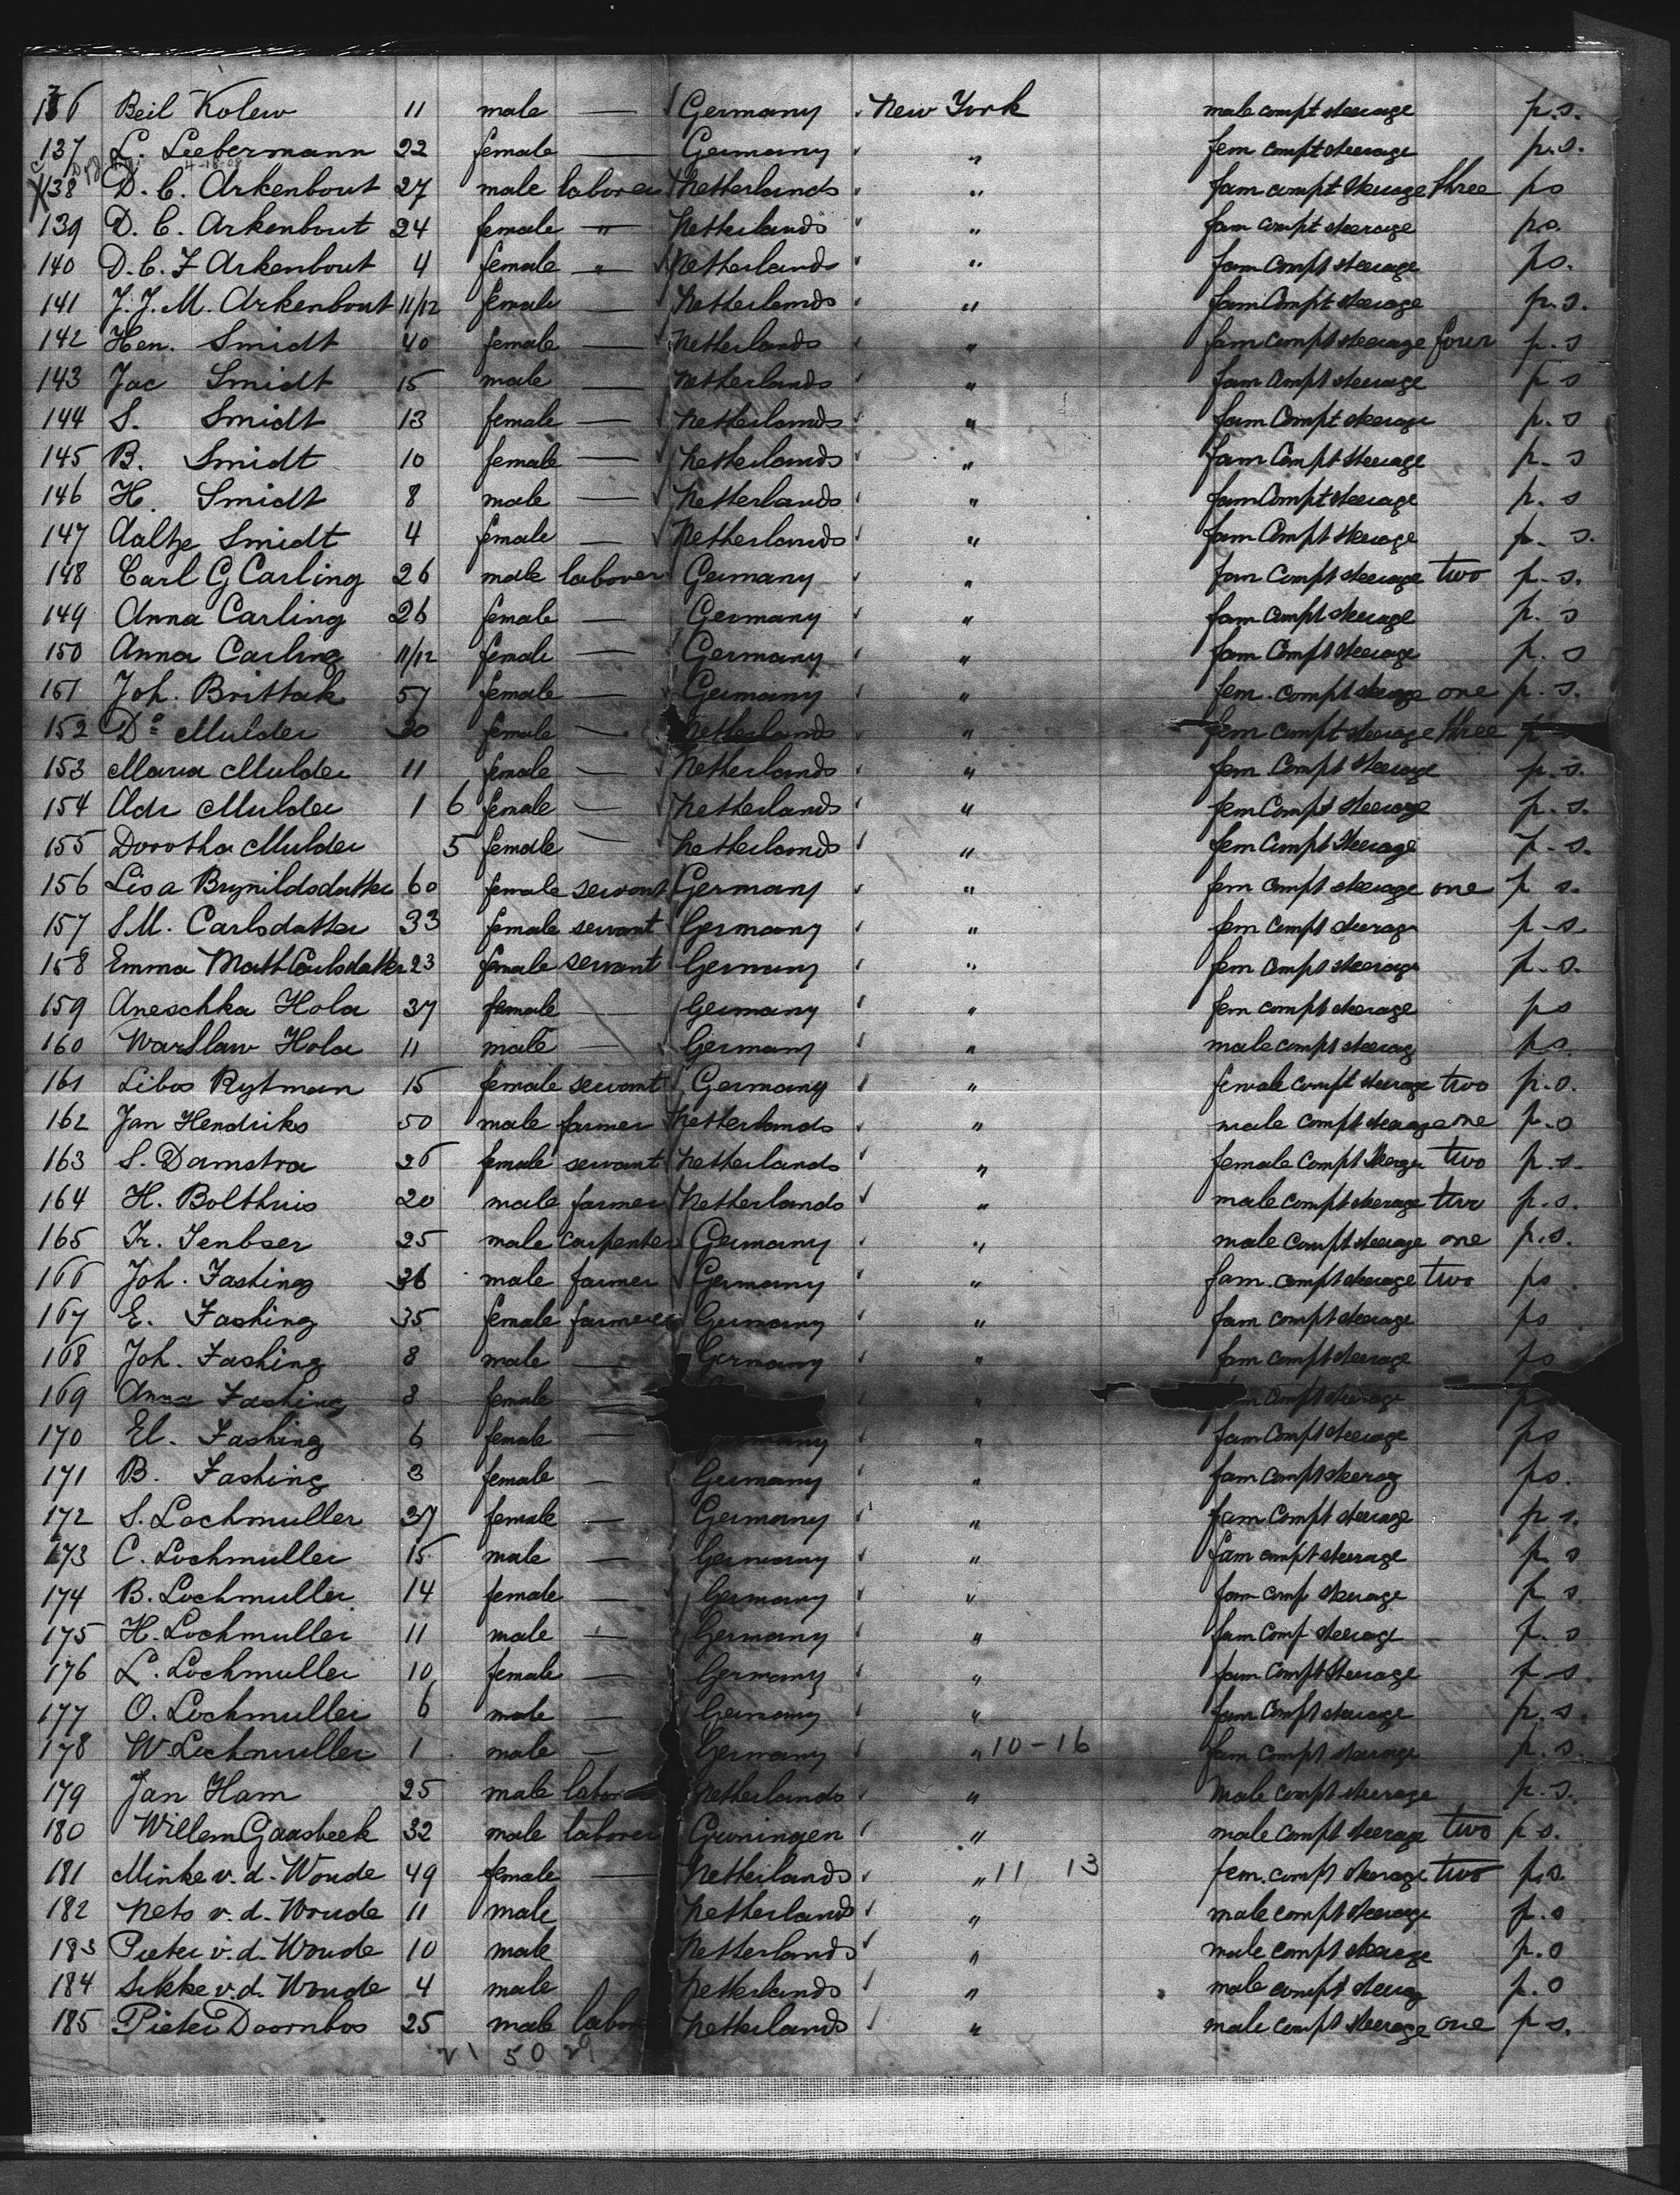 136 Beil Kolew 11 male — Germany New York male compt steerage p.s.
137 L. Liebermann 22 female — Germany " fem compt steerage p.s.
4-18-08
138 D. C. Arkenbout 27 male laborer Netherlands " fam compt steerage three ps
139 D. C. Arkenbout 24 female " Netherlands " fam compt steerage ps.
140 D. C. F Arkenbout 4 female " Netherlands " fam Compt steerage ps.
141 J. J. M. Arkenbout 11/12 female — Netherlands " fam Compt steerage p.s.
142 Hen. Smidt 40 female — Netherlands " fam Compt steerage four p.s
143 Jac Smidt 15 male — Netherlands " fam Compt steerage p s
144 S. Smidt 13 female — Netherlands " fam Compt steerage p.s
145 B. Smidt 10 female — Netherlands " fam Compt steerage p.s
146 H. Smidt 8 male — Netherlands " fam Compt steerage p.s
147 Aaltje Smidt 4 female — Netherlands " fam Compt steerage p. s.
148 Carl G Carling 26 male laborer Germany " fam Compt steerage two p.s.
149 Anna Carling 26 female — Germany " fam Compt steerage p. s
150 Anna Carling 11/12 female — Germany " fam Compt steerage p. s
151 Joh. Brittak 57 female — Germany " fem. compt steerage one p.s.
152 Do Mulder 30 female — Netherlands " fem compt steerage three
153 Maria Mulder 11 female — Netherlands " fem Compt steerage p.s.
154 Adr Mulder 1 6 female — Netherlands " fem Compt steerage p.s.
155 Dorotha Mulder 5 female — Netherlands " fem Compt steerage p.s.
156 Lisa Brynildsdatter 60 female servant Germany " fem compt steerage one p s.
157 S.M. Carlsdatter 33 female servant Germany " fem Compt steerage p.s.
158 Emma Math Carlsdatter 23 female servant Germany " fem Compt steerage p.s.
159 Aneschka Hola 37 female — Germany " fem compt steerage ps
160 Warslaw Hola 11 male — Germany " male compt steerage ps.
161 Libos Rytman 15 female servant Germany " female compt steerage two p.s.
162 Jan Hendriks 50 male farmer Netherlands " male compt steerage one p.s
163 S. Damstra 26 female servant Netherlands " female Compt steerage two p.s.
164 H. Bolthuis 20 male farmer Netherlands " male compt steerage two p.s.
165 Fr. Jenbser 25 male carpenter Germany " male compt steerage one p.s.
166 Joh. Fashing 36 male farmer Germany " fam. compt steerage two ps
167 E. Fashing 35 female Germany " fam compt steerage ps
168 Joh. Fashing 8 male — Germany " fam compt steerage ps
169 Anna Fashing 8 female — " compt steerage
170 El. Fashing 6 female — " fam Compt steerage ps
171 B. Fashing 3 female — Germany " fam compt steerage ps.
172 S. Lochmuller 37 female — Germany " fam Compt steerage p s.
173 C. Lochmuller 15 male — Germany " fam compt steerage p. s
174 B. Lochmuller 14 female — Germany " fam comp steerage p s.
175 H. Lochmuller 11 male — Germany " fam Comp steerage p. s
176 L. Lochmuller 10 female — Germany " fam Compt steerage p.s
177 O. Lochmuller 6 male — Germany " fam Compt steerage p.s.
178 W Lochmuller 1 male — Germany " 10-16 fam compt steerage p.s.
179 Jan Ham 25 male laborer Netherlands " Male compt steerage p.s.
180 Willem Gaasbeek 32 male laborer Groningen " male compt steerage two p s.
181 Minke v. d. Woude 49 female — Netherlands " 11 13 fem. compt steerage two p.s.
182 Nets v. d. Woude 11 male Netherlands " male compt steerage p.s
183 Pieter v. d. Woude 10 male Netherlands " male compt steerage p.s
184 Sikke v. d. Woude 4 male Netherlands " male compt steerage p.s
185 Pieter Doornbos 25 male labor Netherlands " male compt steerage one p s.
21 50 29